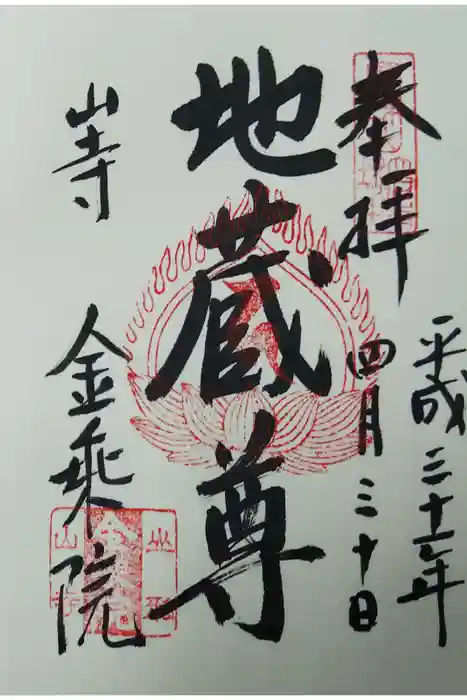 奉拝
平成三十一年
四月三十日
地蔵尊
山寺
金乗院